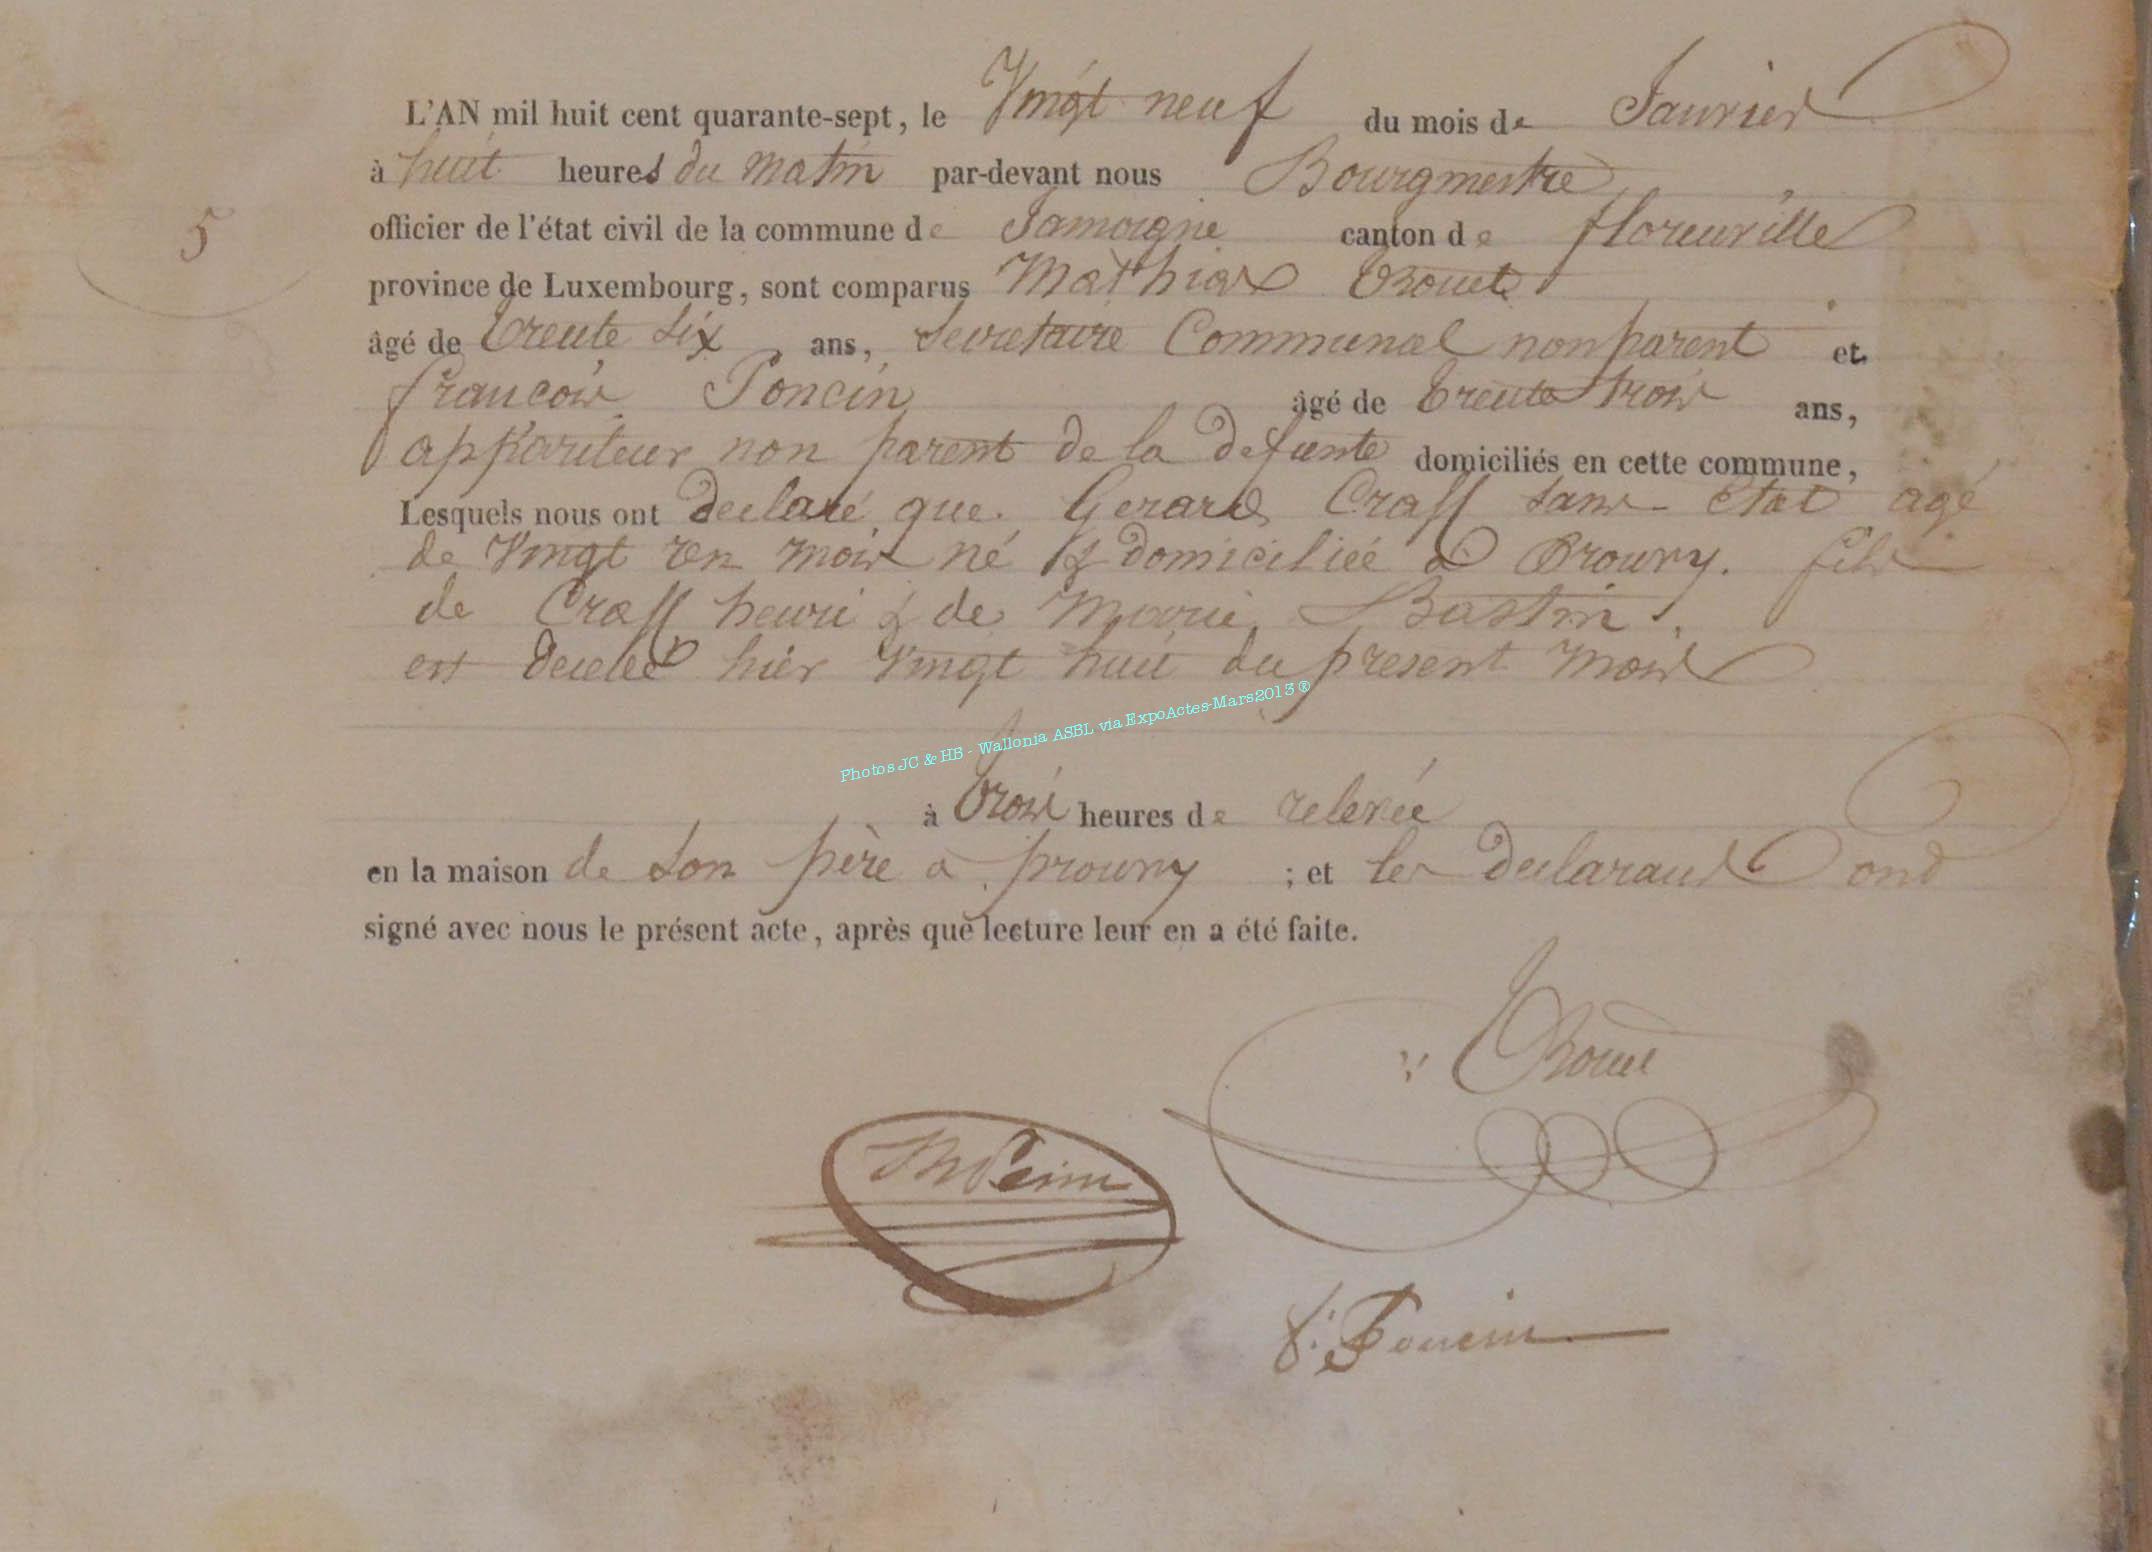 L'AN mil huit cent quarante-sept, le Vingt neuf du mois de Janvier
à huit heures du matin par-devant nous Bourgmestre
5
officier de l'état civil de la commune de Jamoigne canton de florenville
province de Luxembourg, sont comparus Mathias
âgé de trente six ans, Secretaire Communal non parent et
francois Poncin âgé de trente trois ans,
appariteur non parent de la defunte domiciliés en cette commune,
Lesquels nous ont declaré que Gerard Crass sans etat agé
de Vingt un mois né & domiciliée a Prouvy. fils
de Crass henri & de Marie Bastin.
est decedé hier Vingt huit du present mois
Photos JC & HB - Wallonia ASBL via ExpoActes-Mars2013 ®
à trois heures de relevée
en la maison de son père a prouvy ; et les declarans ont
signé avec nous le présent acte, après que lecture leur en a été faite.
f: Poncin